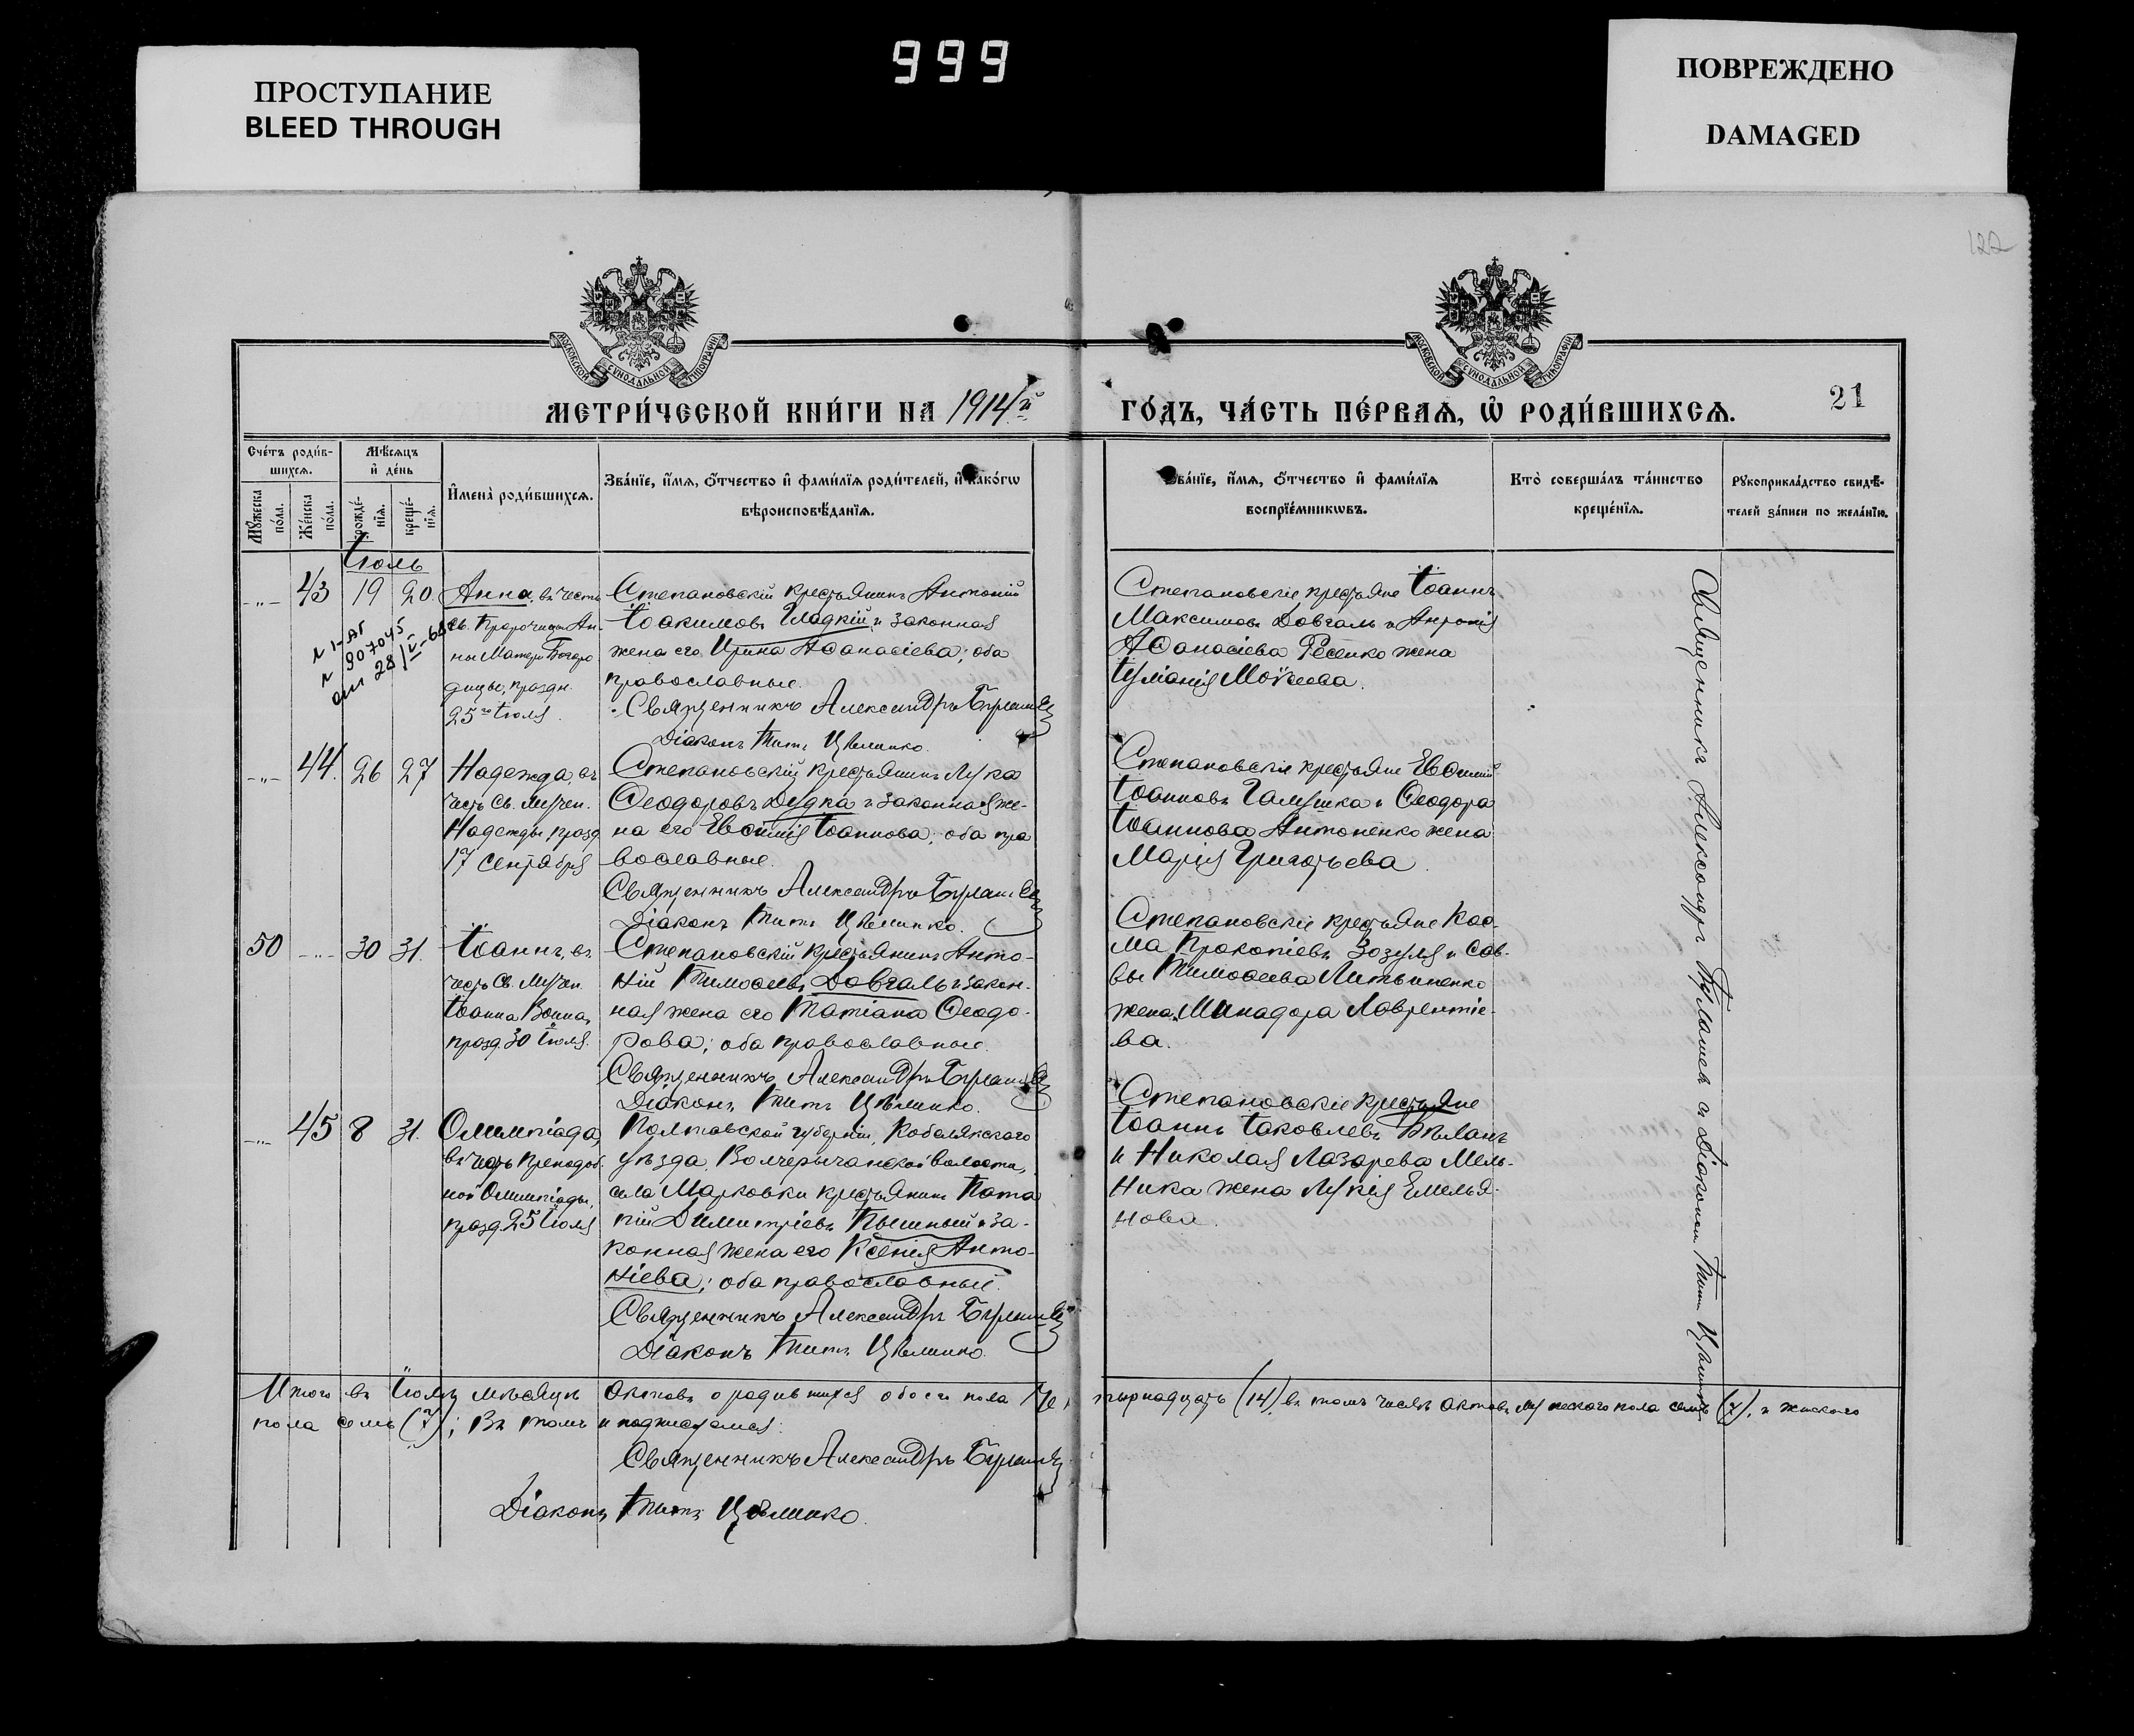 ПРОСТУПАНИЕ
BLEED THROUGH
999
ПОВРЕЖДЕНО
DAMAGED
122
МОСКОВСКОЙ СѴНОДАЛЬНОЙ ТИПОГРАФІИ
МОСКОВСКОЙ СѴНОДАЛЬНОЙ ТИПОГРАФІИ
МЕТРИ́ЧЕСКОЙ КНИ́ГИ НА 1914й
ГО́ДЪ, ЧА́СТЬ ПЕ́РВАѦ, Ѡ҆ РОДИ́ВШИХСѦ.
21
Сче́тъ роди́в-
шихсѧ.
Мꙋ́жеска
по́ла.
Же́нска
по́ла.
Мѣ́сѧцъ
и҆ де́нь
рожде́-
нїѧ.
креще́-
нїѧ.
И҆мена̀ роди́вшихсѧ.
Зва́нїе, и҆́мѧ, ѻ҆́тчество и҆ фами́лїѧ роди́телей, и҆ како́гѡ
вѣроисповѣ́данїѧ.
Зва́нїе, и҆́мѧ, ѻ҆́тчество и҆ фами́лїѧ
воспрїе́мникѡвъ.
Кто̀ соверша́лъ та́инство
креще́нїѧ.
Рꙋкоприкла́дство свидѣ́-
телей за́писи по жела́нїю.
Іюль
-"- 43 19 20.
Анна, въ честь
Св. Пророчицы Ан-
ны Матери Богоро
дицы, праздн.
25го Іюля.
907045
28/V-68
Степановскій крестьянинъ Антоній
Іоакимовъ Гладкій и законная
жена его Ирина Аѳанасіева; оба
православные.
Священникъ Александръ
Діаконъ Титъ
Степановскіе крестьяне Іоаннъ
Максимовъ Довгаль и
Аѳанасіева Фесенко жена
-"- 44. 26 27
Надежда, въ
честь Св. Мучен.
Надежды празд
17 сентября
Степановскій крестьянинъ Лука
Ѳеодоровъ Дудка и законная же-
на его Евѳимія Іоаннова; оба пра
вославные.
Священникъ Александръ
Діаконъ Титъ
Степановскіе крестьяне Евѳимій
Іоанновъ Галушка и Ѳеодора
Іоаннова Антоненко жена
Марія Григорьева.
50 -"- 30 31.
Іоаннъ, въ
честь Св. Мучен.
Іоанна Воина,
празд. 30 Іюля.
Степановскій крестьянинъ Анто-
ній Тимоѳеевъ Довгаль и закон-
ная жена его Татіана Ѳеодо-
рова; оба православные.
Священникъ Александръ
Діаконъ Титъ
Степановскіе крестьяне Кос-
ма Прокопіевъ Зозуля и Сав-
вы Тимоѳеева Литвиненко
жена Минадора Лаврентіе-
ва.
-"- 45 8 31.
Олимпіада,
въ честь Преподоб.
ной Олимпіады,
празд. 25 Іюля
Полтавской губерніи, Кобелякскаго
уѣзда, волости,
села Марковки крестьянинъ Пота
пій Димитріевъ Пышный и за-
конная жена его Ксенія Анто-
ніева; оба православные.
Священникъ Александръ
Діаконъ Титъ
Степановскіе крестьяне
Іоаннъ Іаковлевъ Бѣланъ
и Николая Лазарева Мель-
ника жена Лукія Емелья-
нова.
Священникъ Александръ и Діаконъ Титъ
Итого въ Іюлѣ мѣсяцѣ актовъ о родившихся обоего пола че- тырнадцать (14), въ томъ числѣ актовъ мужескаго пола семь (7), и женскаго
пола семь (7); въ томъ и подписуемся:
Священникъ Александръ
Діаконъ Титъ